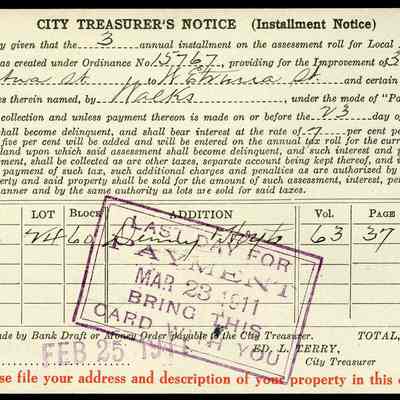 CITY TREASURER'S NOTICE (Installment Notice)
y given that the 3 annual installment on the assessment roll for Local
as created under Ordinance No. 15767, providing for the Improvement of
St. to W. St. and certain
es therein named, by Walks under the mode of "Pa
collection and unless payment thereon is made on or before the 23 day of
hall become delinquent, and shall bear interest at the rate of 7 per cent pe
five per cent will be added and will be entered on the annual tax roll for the curre
land upon which said assessment shall become delinquent, and such interest and p
ment, shall be collected as are other taxes, separate account being kept thereof, and i
payment of such tax, such additional charges and penalties as are authorized by
erty and said property shall be sold for the amount of such assessment, interest, per
anner and by the same authority as lots are sold for said taxes.
LOT BLOCK ADDITION Vol. PAGE
24 60 63 37
LAST DAY FOR
PAYMENT
MAR 23 1911
BRING THIS
CARD WITH YOU
ade by Bank Draft or Money Order payable to the City Treasurer. TOTAL,
FEB 25 1911
ED. L. TERRY,
City Treasurer
se file your address and description of your property in this o